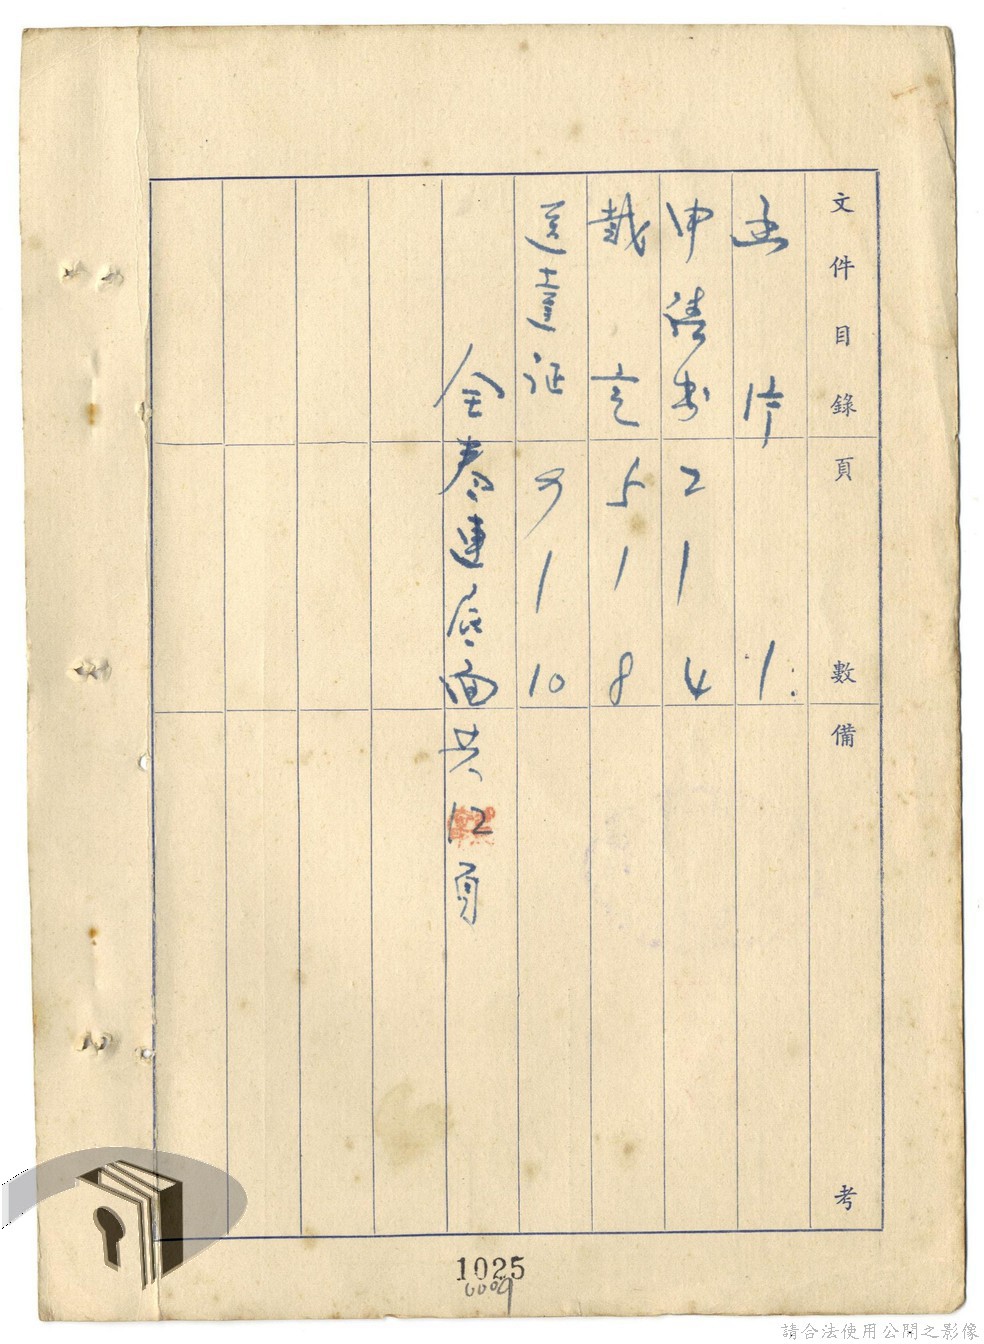 文件目錄 頁數 備考
函片 1.
申請書 2 1 4
裁定 5 1 8
送達証 9 1 10
全卷連底面共12頁
1025
0009
請合法使用公開之影像